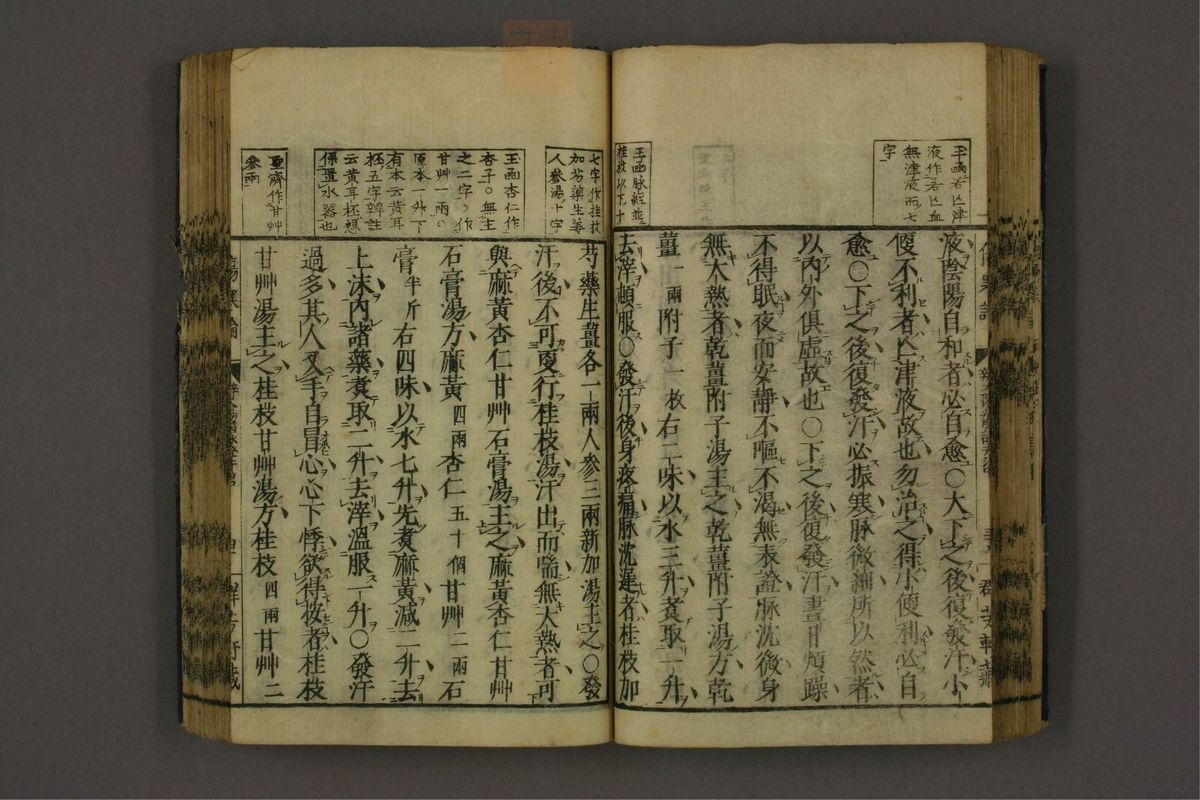 玉函若亾津
液作若亾血
無津液而七
字
液陰陽自和者必自愈○大下之後復發汗小
便不利者亾津液故也勿治之得小便利必自
愈○下之後復發汗必振寒脉微細所以然者
以内外俱虛故也○下之後復發汗晝日煩躁
不得眠夜而安靜不嘔不渴無表證脉沈微身
無大熱者乾薑附子湯主之乾薑附子湯方乾
薑一兩附子一枚右二味以水三升煮取一升
去滓頓服○發汗後身疼痛脉沈遲者桂枝加
玉函脉經並
桂枝以下十
七字作桂枝
加芍藥生姜
人參湯十字
芍藥生薑各一兩人參三兩新加湯主之○發
汗後不可更行桂枝湯汗出而喘無大熱者可
與麻黃杏仁甘艸石膏湯主之麻黃杏仁甘艸
石膏湯方麻黃四兩杏仁五十個甘艸二兩石
膏半斤右四味以水七升先煮麻黃減二升去
上沫内諸藥煮取二升去滓溫服一升○發汗
過多其人叉手自冒心心下悸欲得按者桂枝
甘艸湯主之桂枝甘艸湯方桂枝四兩甘艸二
玉函杏仁作
杏子○無主
之二字○作
甘艸一兩○
原本一升下
有本云黃耳
杯五字辨註
云黃耳杯想
係置水器也
聖濟作甘艸
參兩